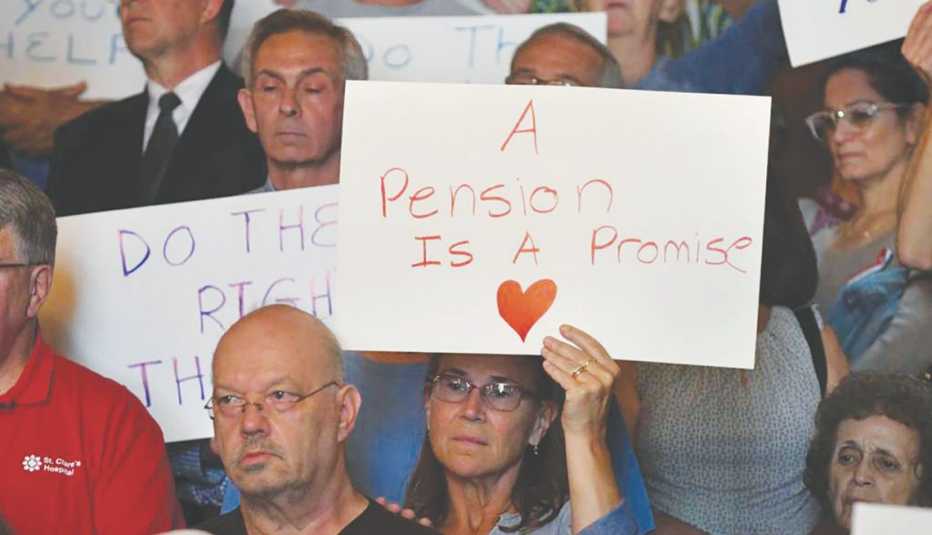 HELP
Do The
A
Pension
Is A Promise
DO THE
RIGH
TH
St. Clare's
Hospital